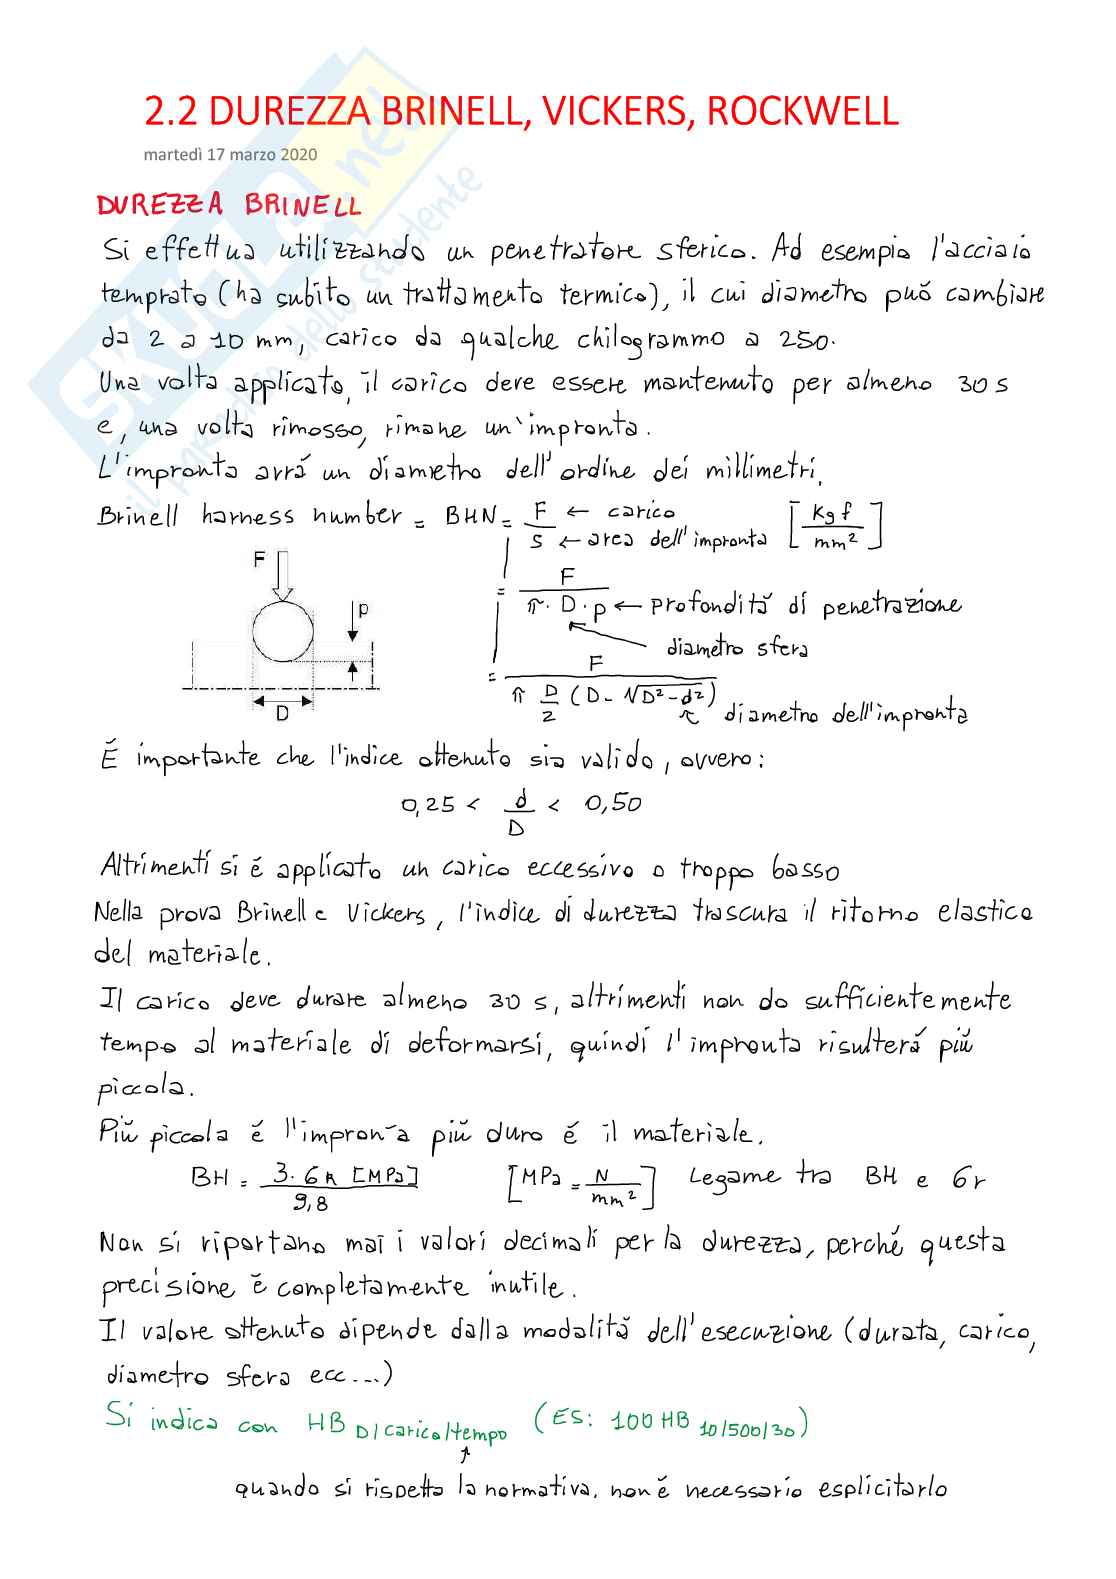 2.2 DUREZZA BRINELL, VICKERS, ROCKWELL
martedì 17 marzo 2020
DUREZZA BRINELL
Si effettua utilizzando un penetratore sferico. Ad esempio l'acciaio
temprato (ha subito un trattamento termico), il cui diametro può cambiare
da 2 a 10 mm, carico da qualche chilogrammo a 250.
Una volta applicato, il carico deve essere mantenuto per almeno 30 s
e, una volta rimosso, rimane un'impronta.
L'impronta avrá un diametro dell'ordine dei millimetri.
Brinell harness number = BHN = F/S ← carico ← area dell'impronta [Kgf/mm²]
= F/(π · D · p) ← profondità di penetrazione
diametro sfera
= F/(π D/2 (D - √D²-d²))
diametro dell'impronta
F
p
D
É importante che l'indice ottenuto sia valido, ovvero:
0,25 < d/D < 0,50
Altrimenti si é applicato un carico eccessivo o troppo basso
Nella prova Brinell e Vickers, l'indice di durezza trascura il ritorno elastico
del materiale.
Il carico deve durare almeno 30 s, altrimenti non do sufficientemente
tempo al materiale di deformarsi, quindi l'impronta risulterá più
piccola.
Più piccola é l'impronta più duro é il materiale.
BH = 3·σR [MPa]/9,8 [MPa = N/mm²] Legame tra BH e σr
Non si riportano mai i valori decimali per la durezza, perché questa
precisione è completamente inutile.
Il valore ottenuto dipende dalla modalitá dell'esecuzione (durata, carico,
diametro sfera ecc...)
Si indica con HB D/carico/tempo (ES: 100 HB 10/500/30)
quando si rispetta la normativa, non é necessario esplicitarlo
SKUOLA.net
il paradiso dello studente